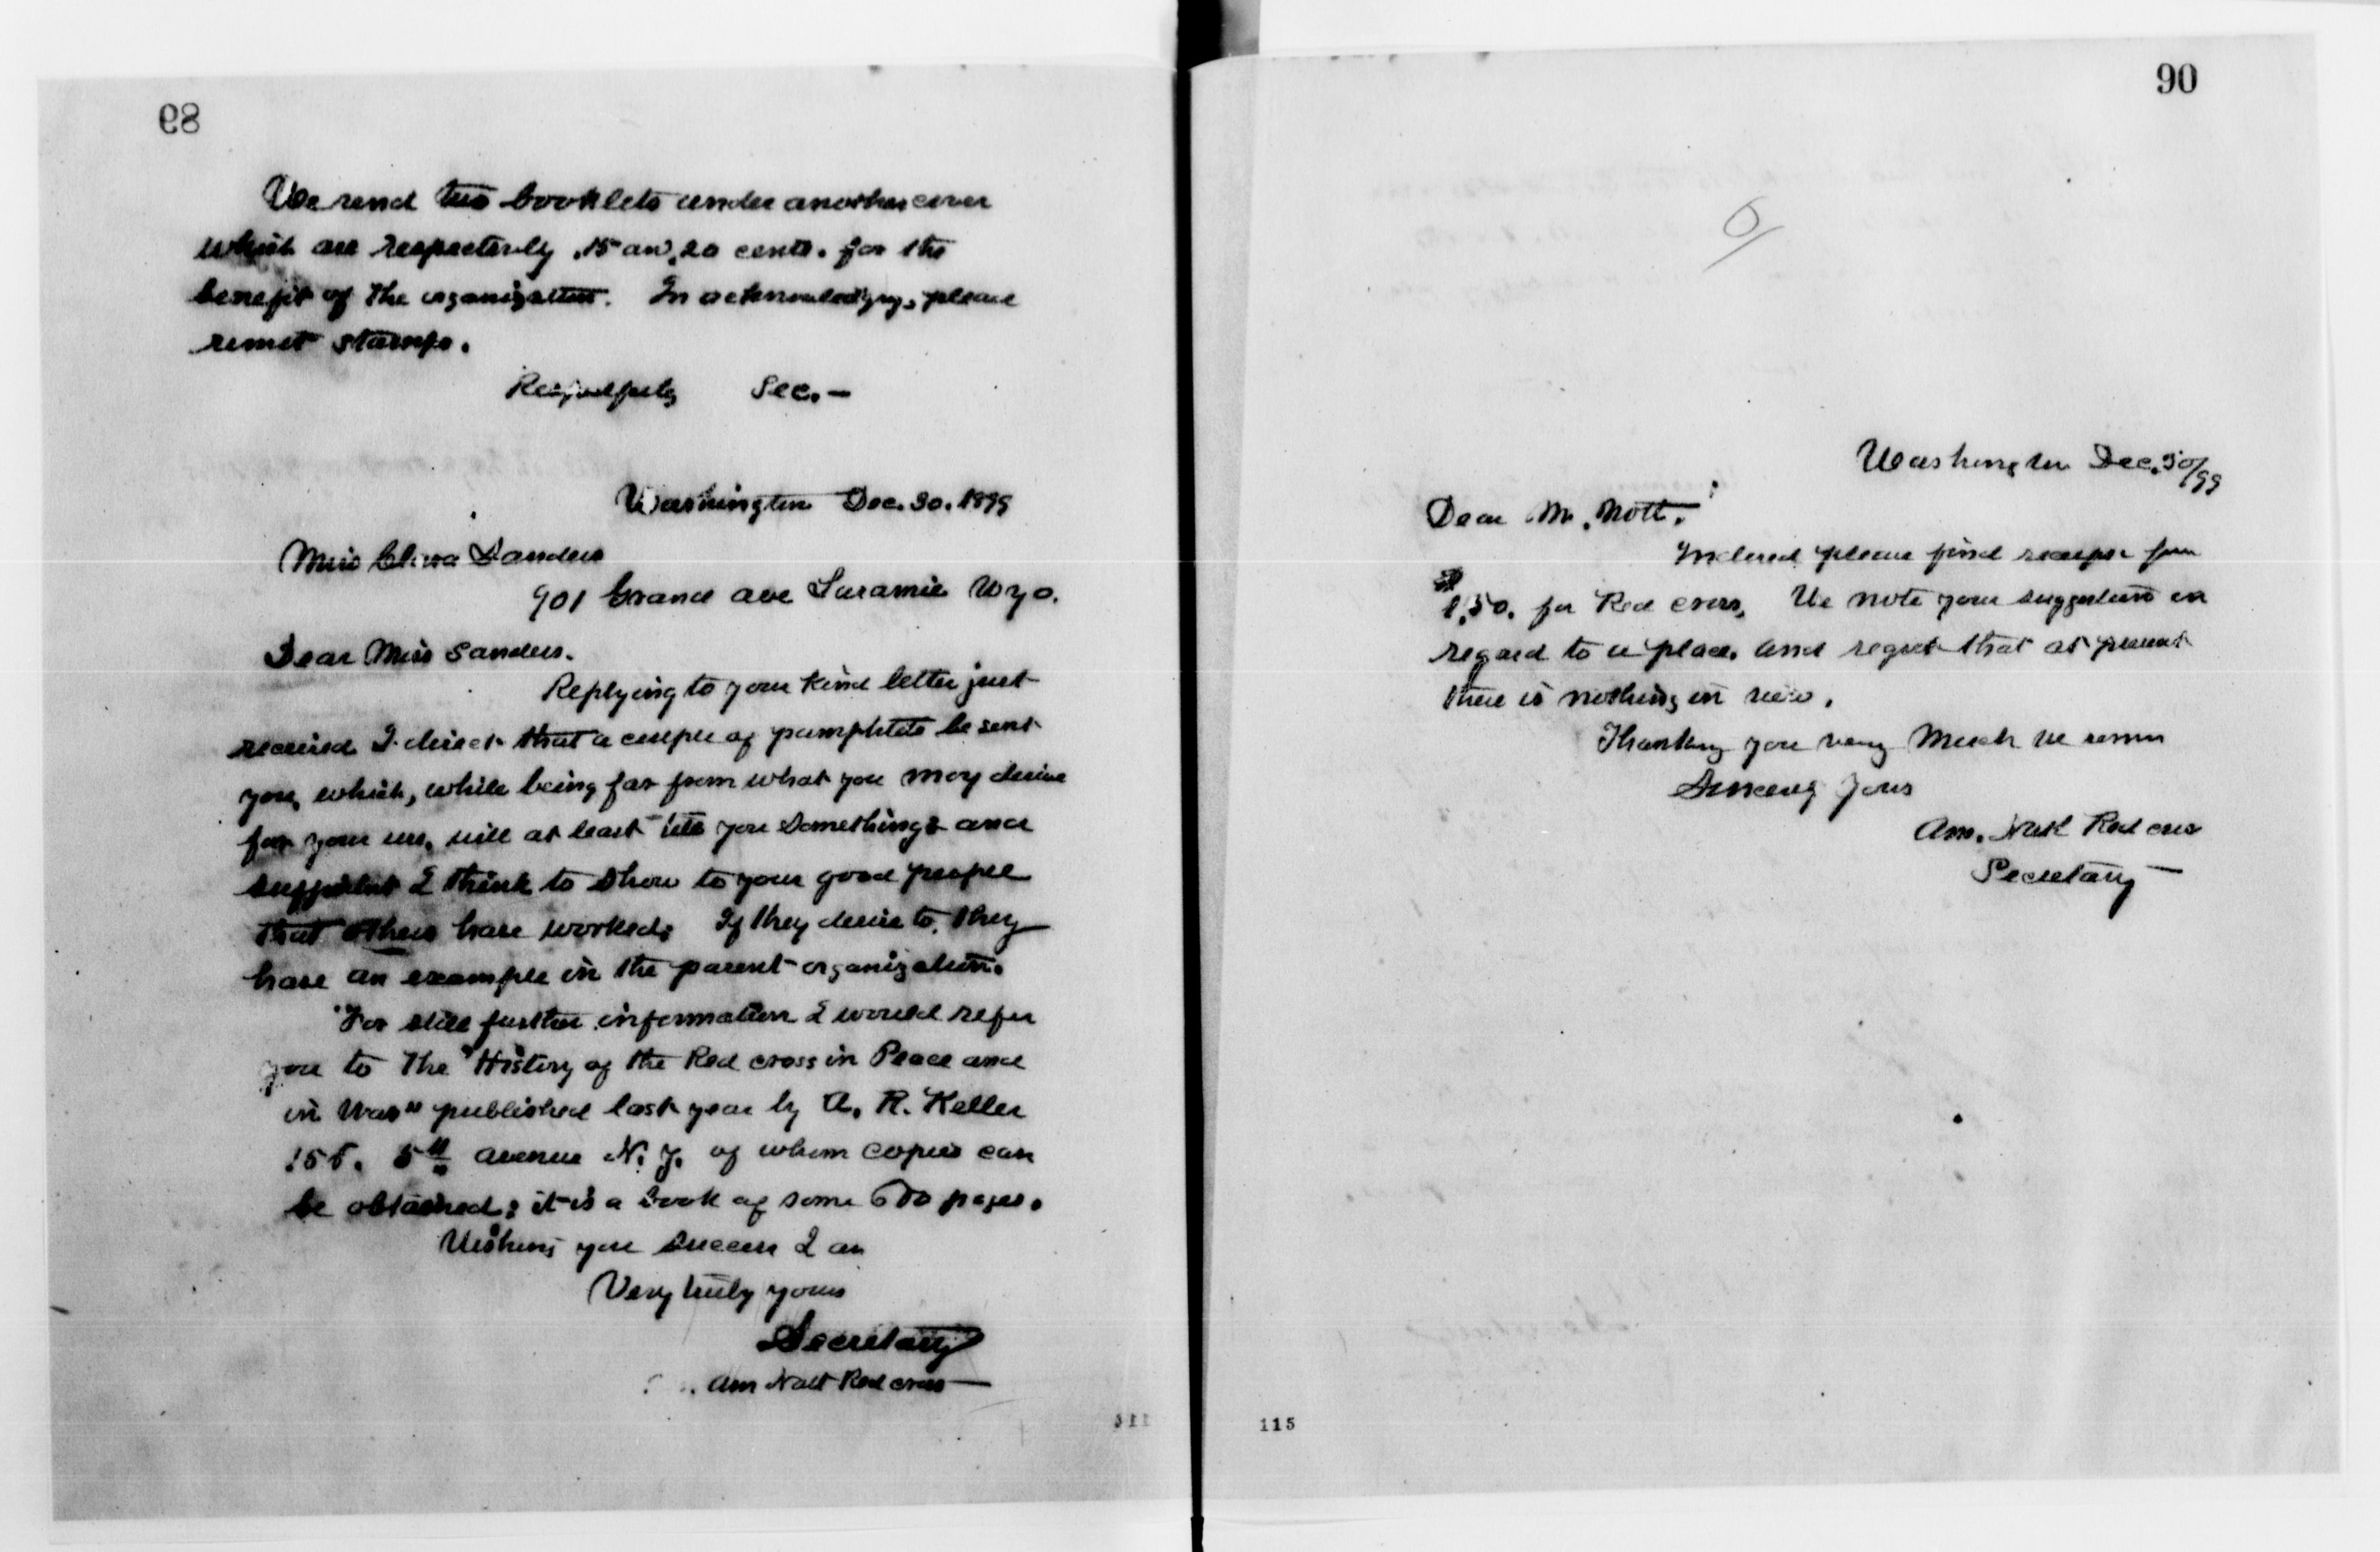 89
We send two booklets under another cover
which are respectively .15 and .20 cents. for the
benefit of the organization. In acknowledging, please
remit stamps.
Respectfully Sec. —
Washington Dec. 30. 1899
Miss Sanders
901 Grand ave Laramie Wyo.
Dear Miss Sanders.
Replying to your kind letter just
received I direct that a couple of pamphlets be sent
you, which, while being far from what you may desire
for your use, will at least tell you something & and
sufficient I think to show to your good people
that others have worked; If they desire to, they
have an example in the parent organization.
For still further information I would refer
you to the "History of the Red cross in Peace and
in War" published last year by A. R. Keller
5th avenue N. Y. of whom copies can
be obtained; it is a book of some 600 pages.
Wishing you success I am
Very truly yours
Secretary
Am Natl Red cross —
90
6/
Washington Dec. 30/99
Dear Mr. Nott.
Inclosed please find receipt for
$1.50. for Red cross, We note your suggestions in
regard to a place. and regret that at present
there is nothing in view.
Thanking you very Much we remain
Sincerely Yours
Am. Natl Red cross
Secretary —
115